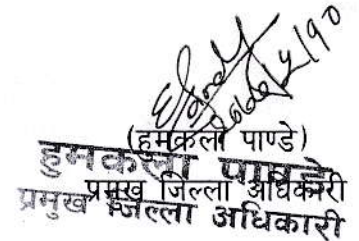 २०७७/५/१०
(हुमकला पाण्डे)
हुमकला पाण्डे
प्रमुख जिल्ला अधिकारी
प्रमुख जिल्ला अधिकारी